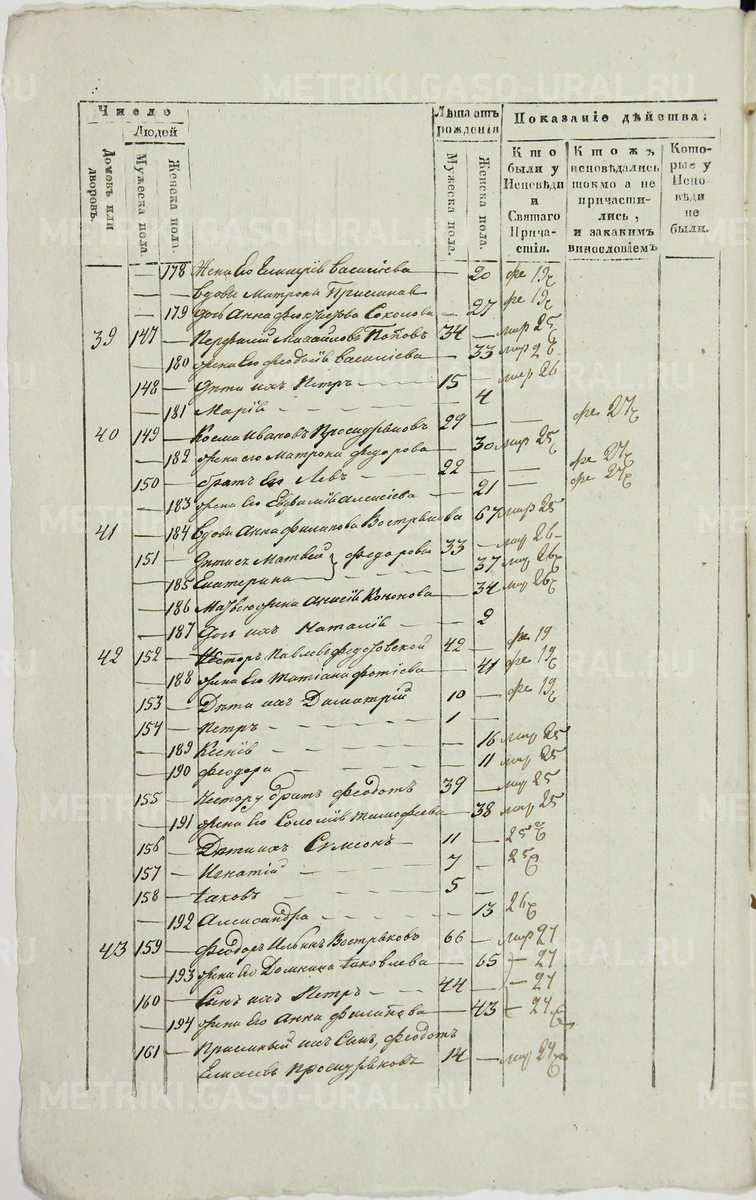 METRIKI.GASO-URAL.RU
Число
Людей
Домовъ или дворовъ.
Мужеска пола.
Женска пола.
Лѣта отъ рожденія
Мужеска пола.
Женска пола.
Показаніе дѣйства:
Кто были у Исповѣди и Святаго Причастія.
Ктожъ исповѣдались токмо а не причастились, и закакимъ винословіемъ
Которые у Исповѣди не были.
— 178 Жена Его Василіева — 20 фе 19
Вдова Матрона
— 179 Дочь Анна Соколова — 27 фе 19
39 147 — Поповъ 34 — мар 25
— 180 жена Его Феодосія Василіева — 33 мар 26
148 — Дѣти ихъ Петръ — 15 — мар 26
— 181 Марія — 4
40 149 — Косма Ивановъ Проскуряковъ 29 — — фе 27
— 182 жена его Матрона Федорова — 30 мар 25
150 — братъ Его Левъ — 22 — — фе 27
— 183 жена Его Алексіева — 21 — фе 27
41 — 184 Вдова Анна Филипова Вострякова 67 мар 25
151 — Дѣти ея Матвей } Федоровы 33 — мар 26
— 185 Екатерина — 37 мар 26
— 186 жена Анисія Кононова — 34 мар 26
— 187 Дочь ихъ Наталія — 2
42 152 — Несторъ Павловъ 42 — фе 19
— 188 жена Его Татіана Фотіева — 41 фе 19
153 — Дѣти ихъ Димитрій 10 — фе 19
154 — Петръ — 1 —
— 189 Ксенія — 16 мар 25
— 190 Феодора — 11 мар 25
155 — Нестору братъ Феодотъ 39 — мар 25
— 191 жена Его Соломія Тимофеева — 38 мар 25
156 — Дѣти ихъ Сумеонъ — 11 — 25
157 — Игнатій — 7 — 25
158 — Іаковъ — 5 —
— 192 Александра — 13
43 159 — Феодоръ Ильинъ Востряковъ 66 — мар 27
— 193 жена Его Домника Іаковлева — 65 — 27
160 — Сынъ ихъ Петръ — 44 — — 27
— 194 жена Его Анна Филипова — 43 — 27
161 — Приемный ихъ Сынъ, Феодотъ
Проскуряковъ 14 — мар 27
METRIKI.GASO-URAL.RU